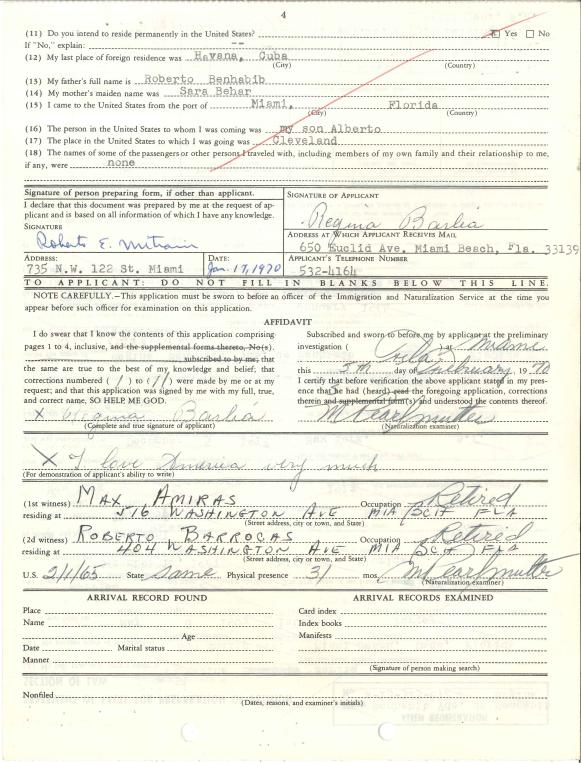 4
(11) Do you intend to reside permanently in the United States? Yes No
If "No," explain: --
(12) My last place of foreign residence was Havana, Cuba
(City) (Country)
(13) My father's full name is Roberto Benhabib
(14) My mother's maiden name was Sara Behar
(15) I came to the United States from the port of Miami, Florida
(City) (Country)
(16) The person in the United States to whom I was coming was my son Alberto
(17) The place in the United States to which I was going was Cleveland
(18) The names of some of the passengers or other persons I traveled with, including members of my own family and their relationship to me,
if any, were none
Signature of person preparing form, if other than applicant.
I declare that this document was prepared by me at the request of ap-
plicant and is based on all information of which I have any knowledge.
SIGNATURE
Roberto E.
ADDRESS: DATE:
735 N.W. 122 St. Miami Jan. 17, 1970
SIGNATURE OF APPLICANT
Regina Barlia
ADDRESS AT WHICH APPLICANT RECEIVES MAIL
650 Euclid Ave. Miami Beach, Fla. 33139
APPLICANT'S TELEPHONE NUMBER
532-4164
TO APPLICANT: DO NOT FILL IN BLANKS BELOW THIS LINE.
NOTE CAREFULLY.—This application must be sworn to before an officer of the Immigration and Naturalization Service at the time you
appear before such officer for examination on this application.
AFFIDAVIT
I do swear that I know the contents of this application comprising
pages 1 to 4, inclusive, and the supplemental forms thereto, No(s).
subscribed to by me; that
the same are true to the best of my knowledge and belief; that
corrections numbered (1) to (11) were made by me or at my
request; and that this application was signed by me with my full, true,
and correct name, SO HELP ME GOD.
X Regina Barlia
(Complete and true signature of applicant)
Subscribed and sworn to before me by applicant at the preliminary
investigation ( ) at Miami
Fla
this 5th day of February, 1970
I certify that before verification the above applicant stated in my pres-
ence that he had (heard) read the foregoing application, corrections
therein and supplemental form(s) and understood the contents thereof.
M Pearlmutter
(Naturalization examiner)
X I love America very much
(For demonstration of applicant's ability to write)
(1st witness) MAX AMIRAS Occupation Retired
residing at 516 WASHINGTON AVE MIA BCH FLA
(Street address, city or town, and State)
(2d witness) ROBERTO BARROCAS Occupation Retired
residing at 404 WASHINGTON AVE MIA BCH FLA
(Street address, city or town, and State)
U.S. 2/1/65 State same Physical presence 31 mos. M Pearlmutter
(Naturalization examiner)
ARRIVAL RECORD FOUND
Place
Name
Age
Date Marital status
Manner
ARRIVAL RECORDS EXAMINED
Card index
Index books
Manifests
(Signature of person making search)
Nonfiled
(Dates, reasons, and examiner's initials)